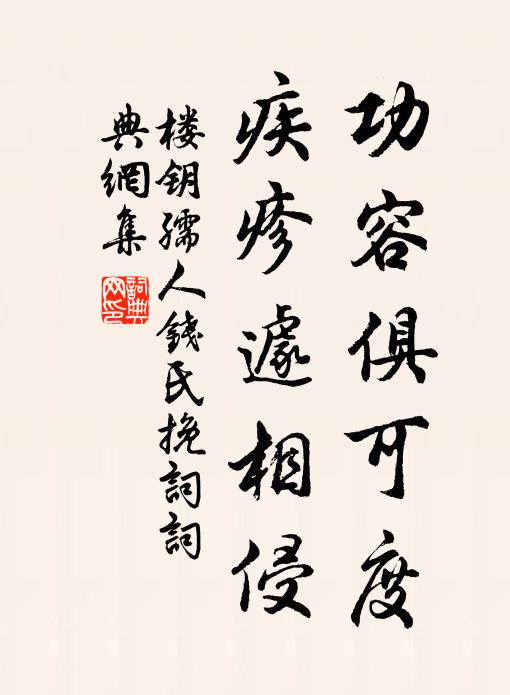 功容俱可度
疾疹遽相侵
楼钥孺人錢氏挽詞詞
典網集
詞典
网印